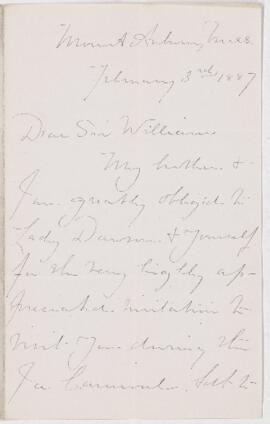 Mount Auburn, Mass.
February 3rd, 1887
Dear Sir William,
My mother &
I are greatly obliged to
Lady Dawson & yourself
for the very highly ap-
preciated invitation to
visit you during the
Ice Carnival. But to